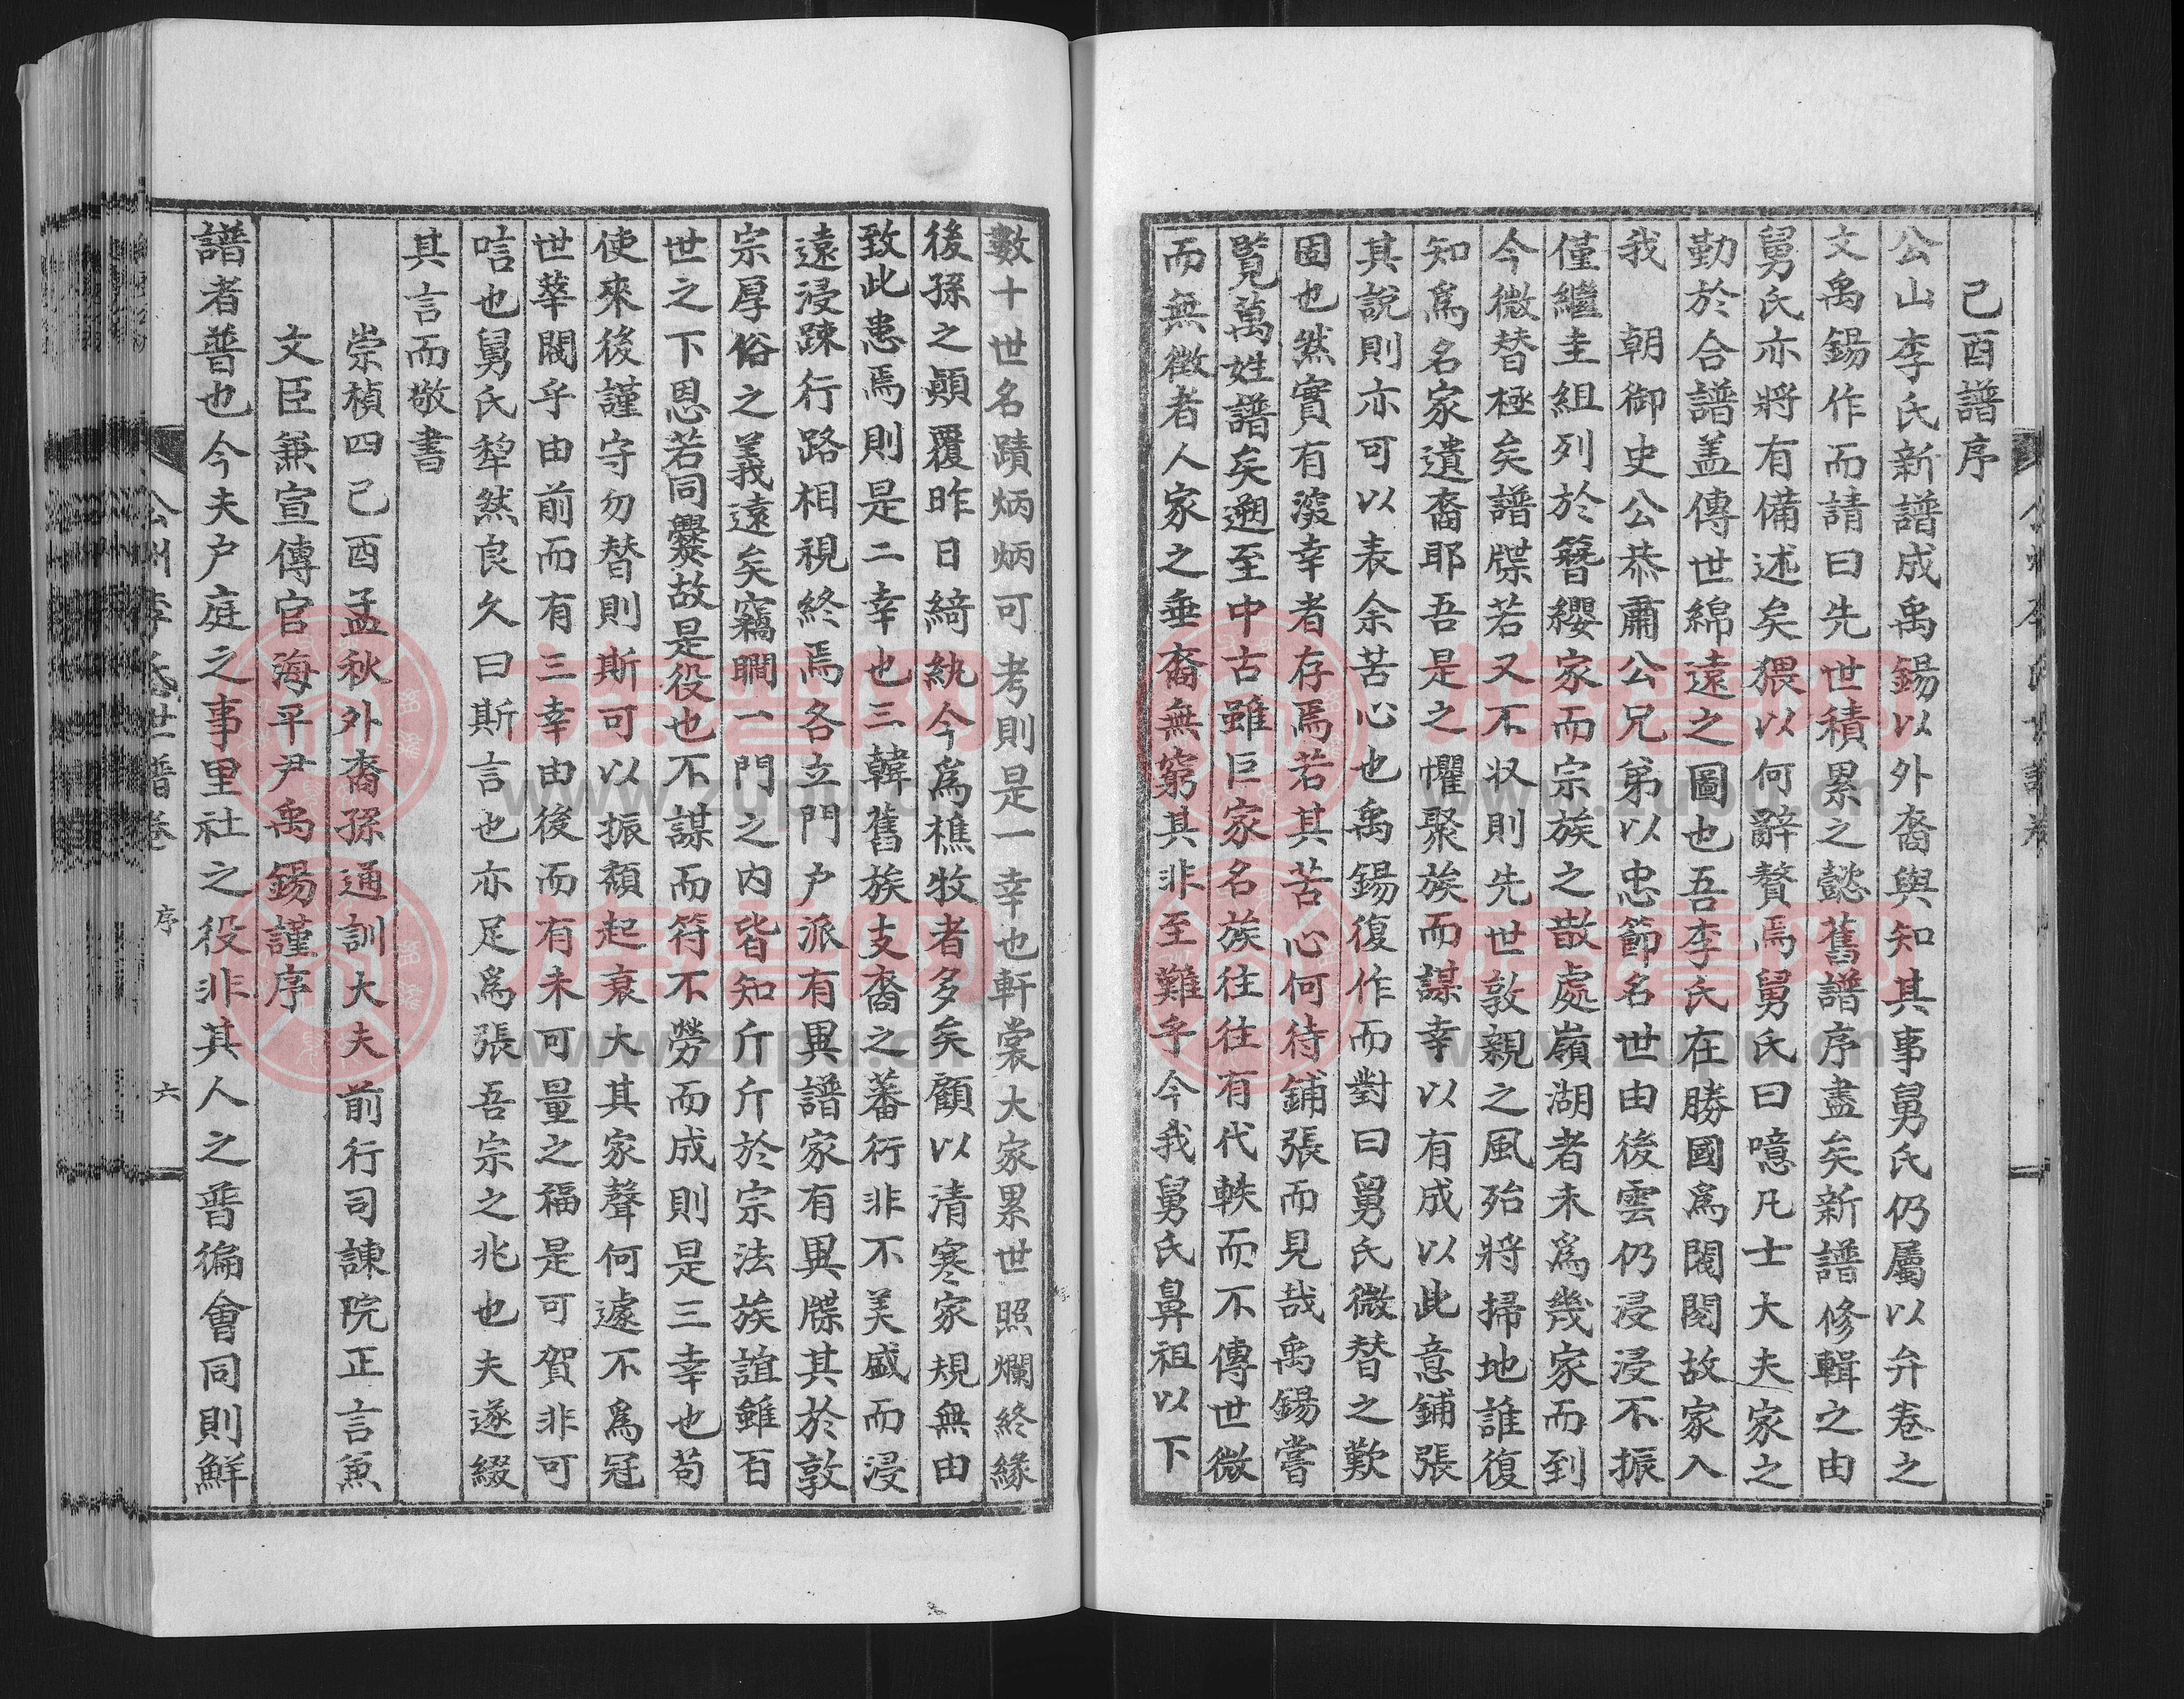 己酉譜序
公山李氏新譜成禹錫以外裔與知其事舅氏仍屬以弁卷之
文禹錫作而請曰先世積累之懿舊譜序盡矣新譜修輯之由
舅氏亦將有備述矣猥以何辭贅焉舅氏曰噫凡士大夫家之
勤於合譜盖傳世綿遠之圖也吾李氏在勝國爲閥閱故家入
我 朝御史公恭肅公兄弟以忠節名世由後雲仍浸浸不振
僅繼圭組列於簪纓家而宗族之散處嶺湖者未爲幾家而到
今微替極矣譜牒若又不収則先世敦親之風殆將掃地誰復
知爲名家遺裔耶吾是之懼聚族而謀幸以有成以此意鋪張
其說則亦可以表余苦心也禹錫復作而對曰舅氏微替之歎
固也然實有深幸者存焉若其苦心何待鋪張而見哉禹錫嘗
覽萬姓譜矣遡至中古雖巨家名族往往有代軼而不傳世微
而無徵者人家之垂裔無窮其非至難乎今我舅氏鼻祖以下
數十世名蹟炳炳可考則是一幸也軒裳大家累世照爛終緣
後孫之顚覆昨日綺紈今爲樵牧者多矣顧以清寒家規無由
致此患焉則是二幸也三韓舊族支裔之蕃衍非不美盛而浸
遠浸踈行路相視終焉各立門户派有異譜家有異牒其於敦
宗厚俗之義遠矣竊瞯一門之内皆知斤斤於宗法族誼雖百
世之下恩若同爨故是役也不謀而符不勞而成則是三幸也苟
使來後謹守勿替則斯可以振頹起衰大其家聲何遽不爲冠
世華閥乎由前而有三幸由後而有未可量之福是可賀非可
唁也舅氏犂然良久曰斯言也亦足爲張吾宗之兆也夫遂綴
其言而敬書
崇楨四己酉孟秋外裔孫通訓大夫 前行司諫院正言兼
文臣兼宣傳官海平尹禹錫謹序
譜者普也今夫户庭之事里社之役非其人之普徧會同則鮮
公州李氏世譜卷 序 六